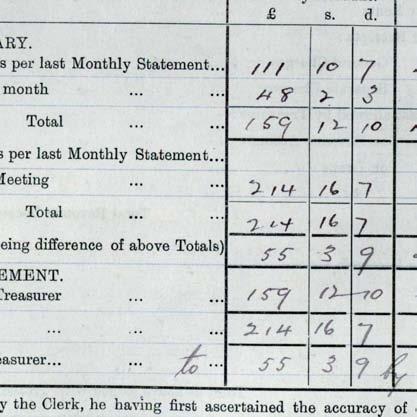 £ s. d.
ARY.
s per last Monthly Statement... 111 10 7
month ... ... 48 2 3
Total ... ... 159 12 10
s per last Monthly Statement...
Meeting ... ... 214 16 7
Total ... ... 214 16 7
eing difference of above Totals) 55 3 9
EMENT.
Treasurer ... ... 159 12 10
... ... 214 16 7
easurer... ... to ... 55 3 9 by
y the Clerk, he having first ascertained the accuracy of